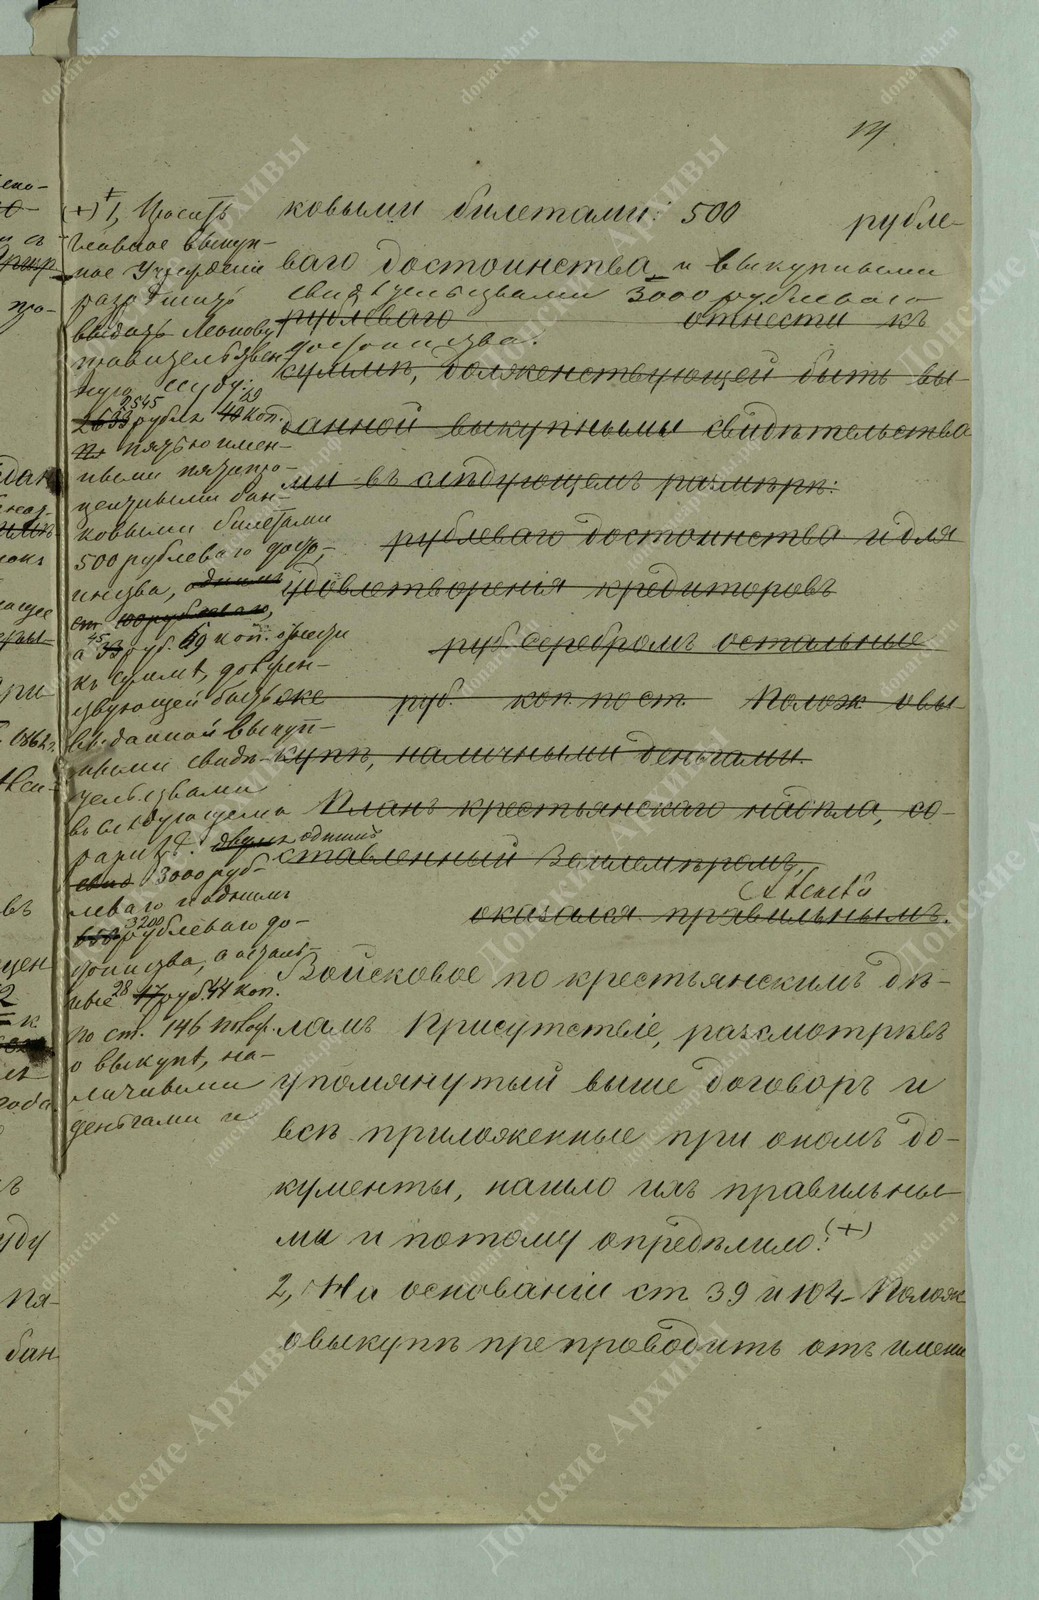 14
ковыми билетами: 500 рубле-
ваго достоинства и выкупными
свидѣтельствами 3000 рублеваго
рублеваго отнести къ
достоинства.
суммѣ, долженствующей быть вы-
данной выкупными свидѣтельства
ми въ слѣдующемъ размѣрѣ:
рублеваго достоинства и для
удовлетворенія кредиторовъ
руб. серебромъ остальные
же руб. коп. по ст. Полож. о вы-
купѣ, наличными деньгами.
Планъ крестьянскаго надѣла, со-
ставленный Землемѣромъ,
оказался правильнымъ.
Войсковое по крестьянскимъ дѣ-
ламъ Присутствіе, разсмотрѣвъ
упомянутый выше договоръ и
всѣ приложенные при ономъ до-
кументы, нашло ихъ правильны-
ми и потому опредѣлило: (+)
2, На основаніи ст 39 и 104 Полож
о выкупѣ препроводить отъ имени
(+) 1, Просить
главное выкуп-
ное Учрежденіе
разрѣшить
выдать Леонову
правительствен
ную ссуду:
2545 рубля коп.
пятью имен-
ными пятипро-
центными бан-
ковыми билетами
500 рублеваго досто-
инства, однимъ
100 рублеваго,
а 45 руб. коп. отнести
къ суммѣ, должен-
ствующей быть
вы-данной выкуп-
ными свидѣ-
тельствами
въ слѣдующемъ
размѣрѣ: двумя однимъ
3000 руб-
леваго и однимъ
3200 рублеваго до-
стоинства, а осталь-
ные 28 17 руб. 44 коп.
по ст. 146 Полож.
о выкупѣ, на-
личными
деньгами и